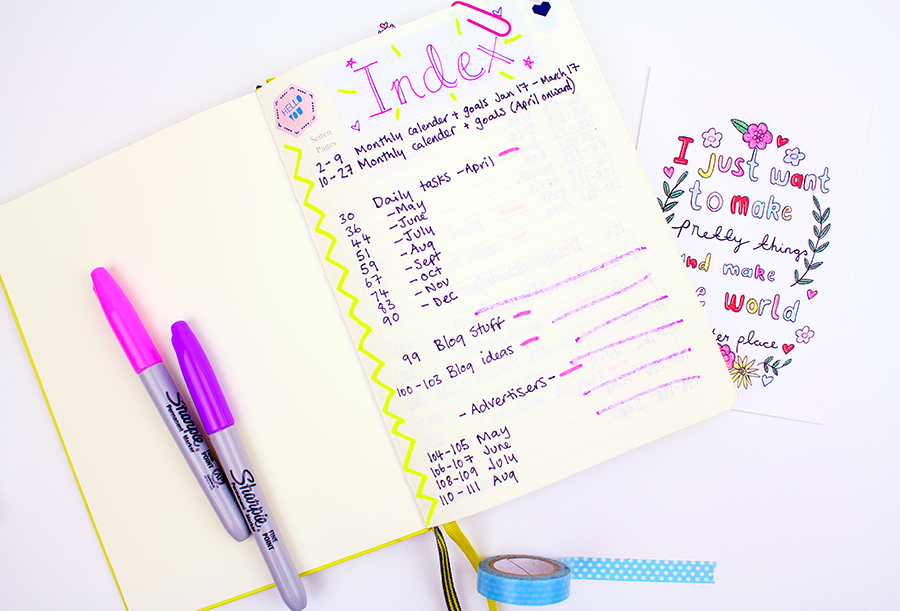 HELLO
YOU
Index
Seiten
Pages
2-9 Monthly calender + goals Jan 17 - March 17
10-27 Monthly calender + goals (April onward)
30 Daily tasks - April
36 - May
44 - June
51 - July
59 - Aug
67 - Sept
74 - Oct
83 - Nov
90 - Dec
99 Blog stuff
100-103 Blog ideas
- Advertisers -
104-105 May
106-107 June
108-109 July
110-111 Aug
I Just want
to make
pretty things
and make
world
place
Sharpie
Permanent Marker
FINE
POINT
Sharpie
Permanent Marker
FINE
POINT